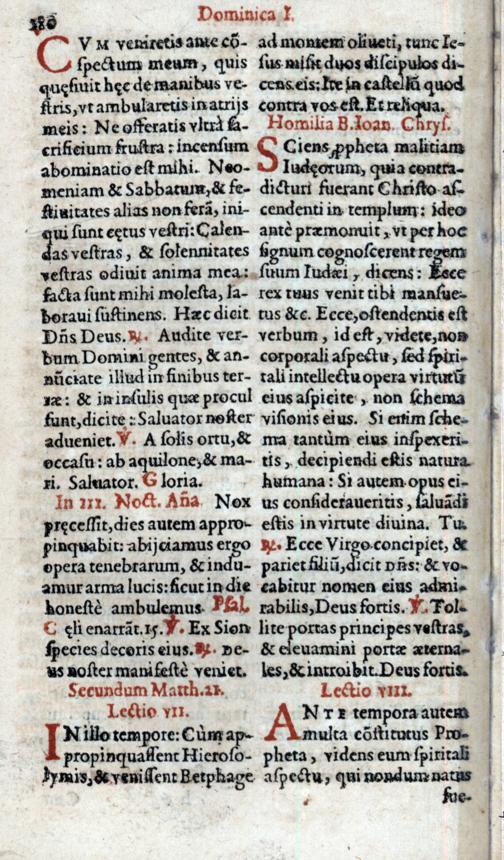 380
Dominica I.
CVM veniretis ante cõ-
spectum meum, quis
quęsiuit hęc de manibus ve-
stris, vt ambularetis in atrijs
meis: Ne offeratis vltrà sa-
crificium frustra: incensum
abominatio est mihi. Neo-
meniam & Sabbatum, & fe-
stiuitates alias non ferã, ini-
qui sunt cętus vestri: Calen-
das vestras, & solennitates
vestras odiuit anima mea:
facta sunt mihi molesta, la-
boraui sustinens. Hæc dicit
Dñs Deus. ℟. Audite ver-
bum Domini gentes, & an-
nũciate illud in finibus ter-
ræ: & in insulis quæ procul
sunt, dicite: Saluator noster
adueniet. ℣. A solis ortu, &
occasu: ab aquilone, & ma-
ri. Saluator. Gloria.
In III. Noct. Aña. Nox
pręcessit, dies autem appro-
pinquabit: abijciamus ergo
opera tenebrarum, & indu-
amur arma lucis: sicut in die
honestè ambulemus. Psal.
Cęli enarrãt. 15. ℣. Ex Sion
species decoris eius. ℟. De-
us noster manifestè veniet.
Secundum Matth. 21.
Lectio VII.
IN illo tempore: Cùm ap-
propinquassent Hieroso-
lymis, & venissent Betphage
ad montem oliueti, tunc Ie-
sus misit duos discipulos di-
cens eis: Ite in castellũ quod
contra vos est. Et reliqua.
Homilia B. Ioan. Chrys.
SCiens ꝓpheta malitiam
Iudęorum, quia contra-
dicturi fuerant Christo as-
cendenti in templum: ideo
antè præmonuit, vt per hoc
signum cognoscerent regem
suum Iudæi, dicens: Ecce
rex tuus venit tibi mansue-
tus &c. Ecce, ostendentis est
verbum, id est, videte, non
corporali aspectu, sed spiri-
tali intellectu opera virtutũ
eius aspicite, non schema
visionis eius. Si enim sche-
ma tantùm eius inspexeri-
tis, decipiendi estis natura
humana: Si autem opus ei-
us consideraueritis, saluãdi
estis in virtute diuina. Tu.
℟. Ecce Virgo concipiet, &
pariet filiũ, dicit Dñs: & vo-
cabitur nomen eius admi-
rabilis, Deus fortis. ℣. Tol-
lite portas principes vestras,
& eleuamini portæ æterna-
les, & introibit. Deus fortis.
Lectio VIII.
ANTE tempora autem
multa cõstitutus Pro-
pheta, videns eum spiritali
aspectu, qui nondum natus
fue-